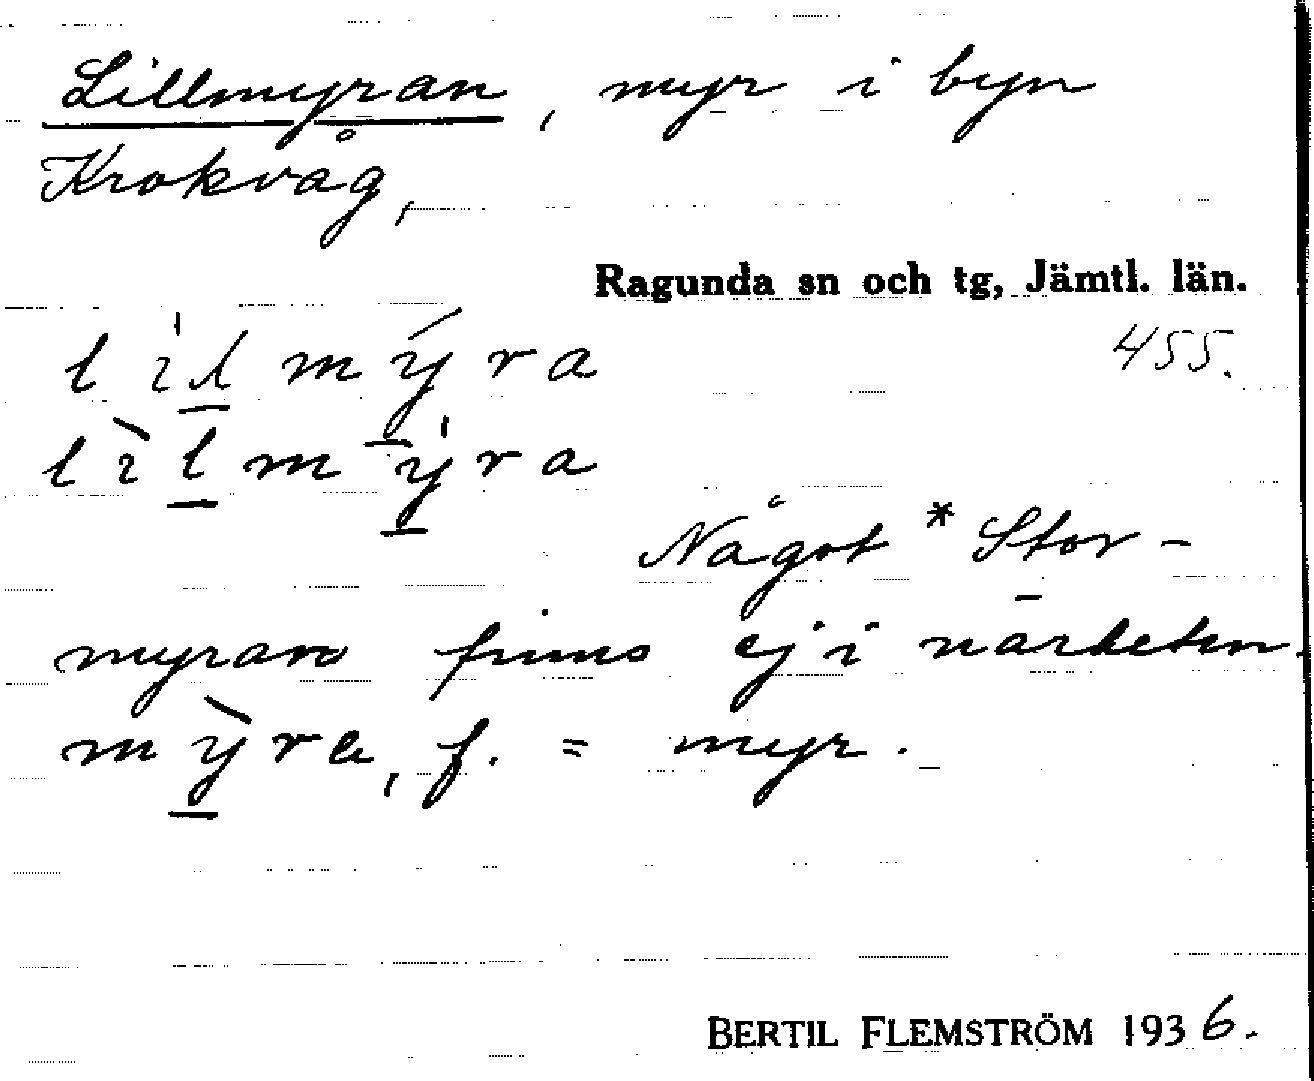 Lillmyran, myr i byn
Krokvåg,
Ragunda sn och tg, Jämtl. län.
455.
lìlmýra
lìlmýra
Något * Stor-
myran finns ej i närheten.
mỳra, f. = myr.
BERTIL FLEMSTRÖM 1936.